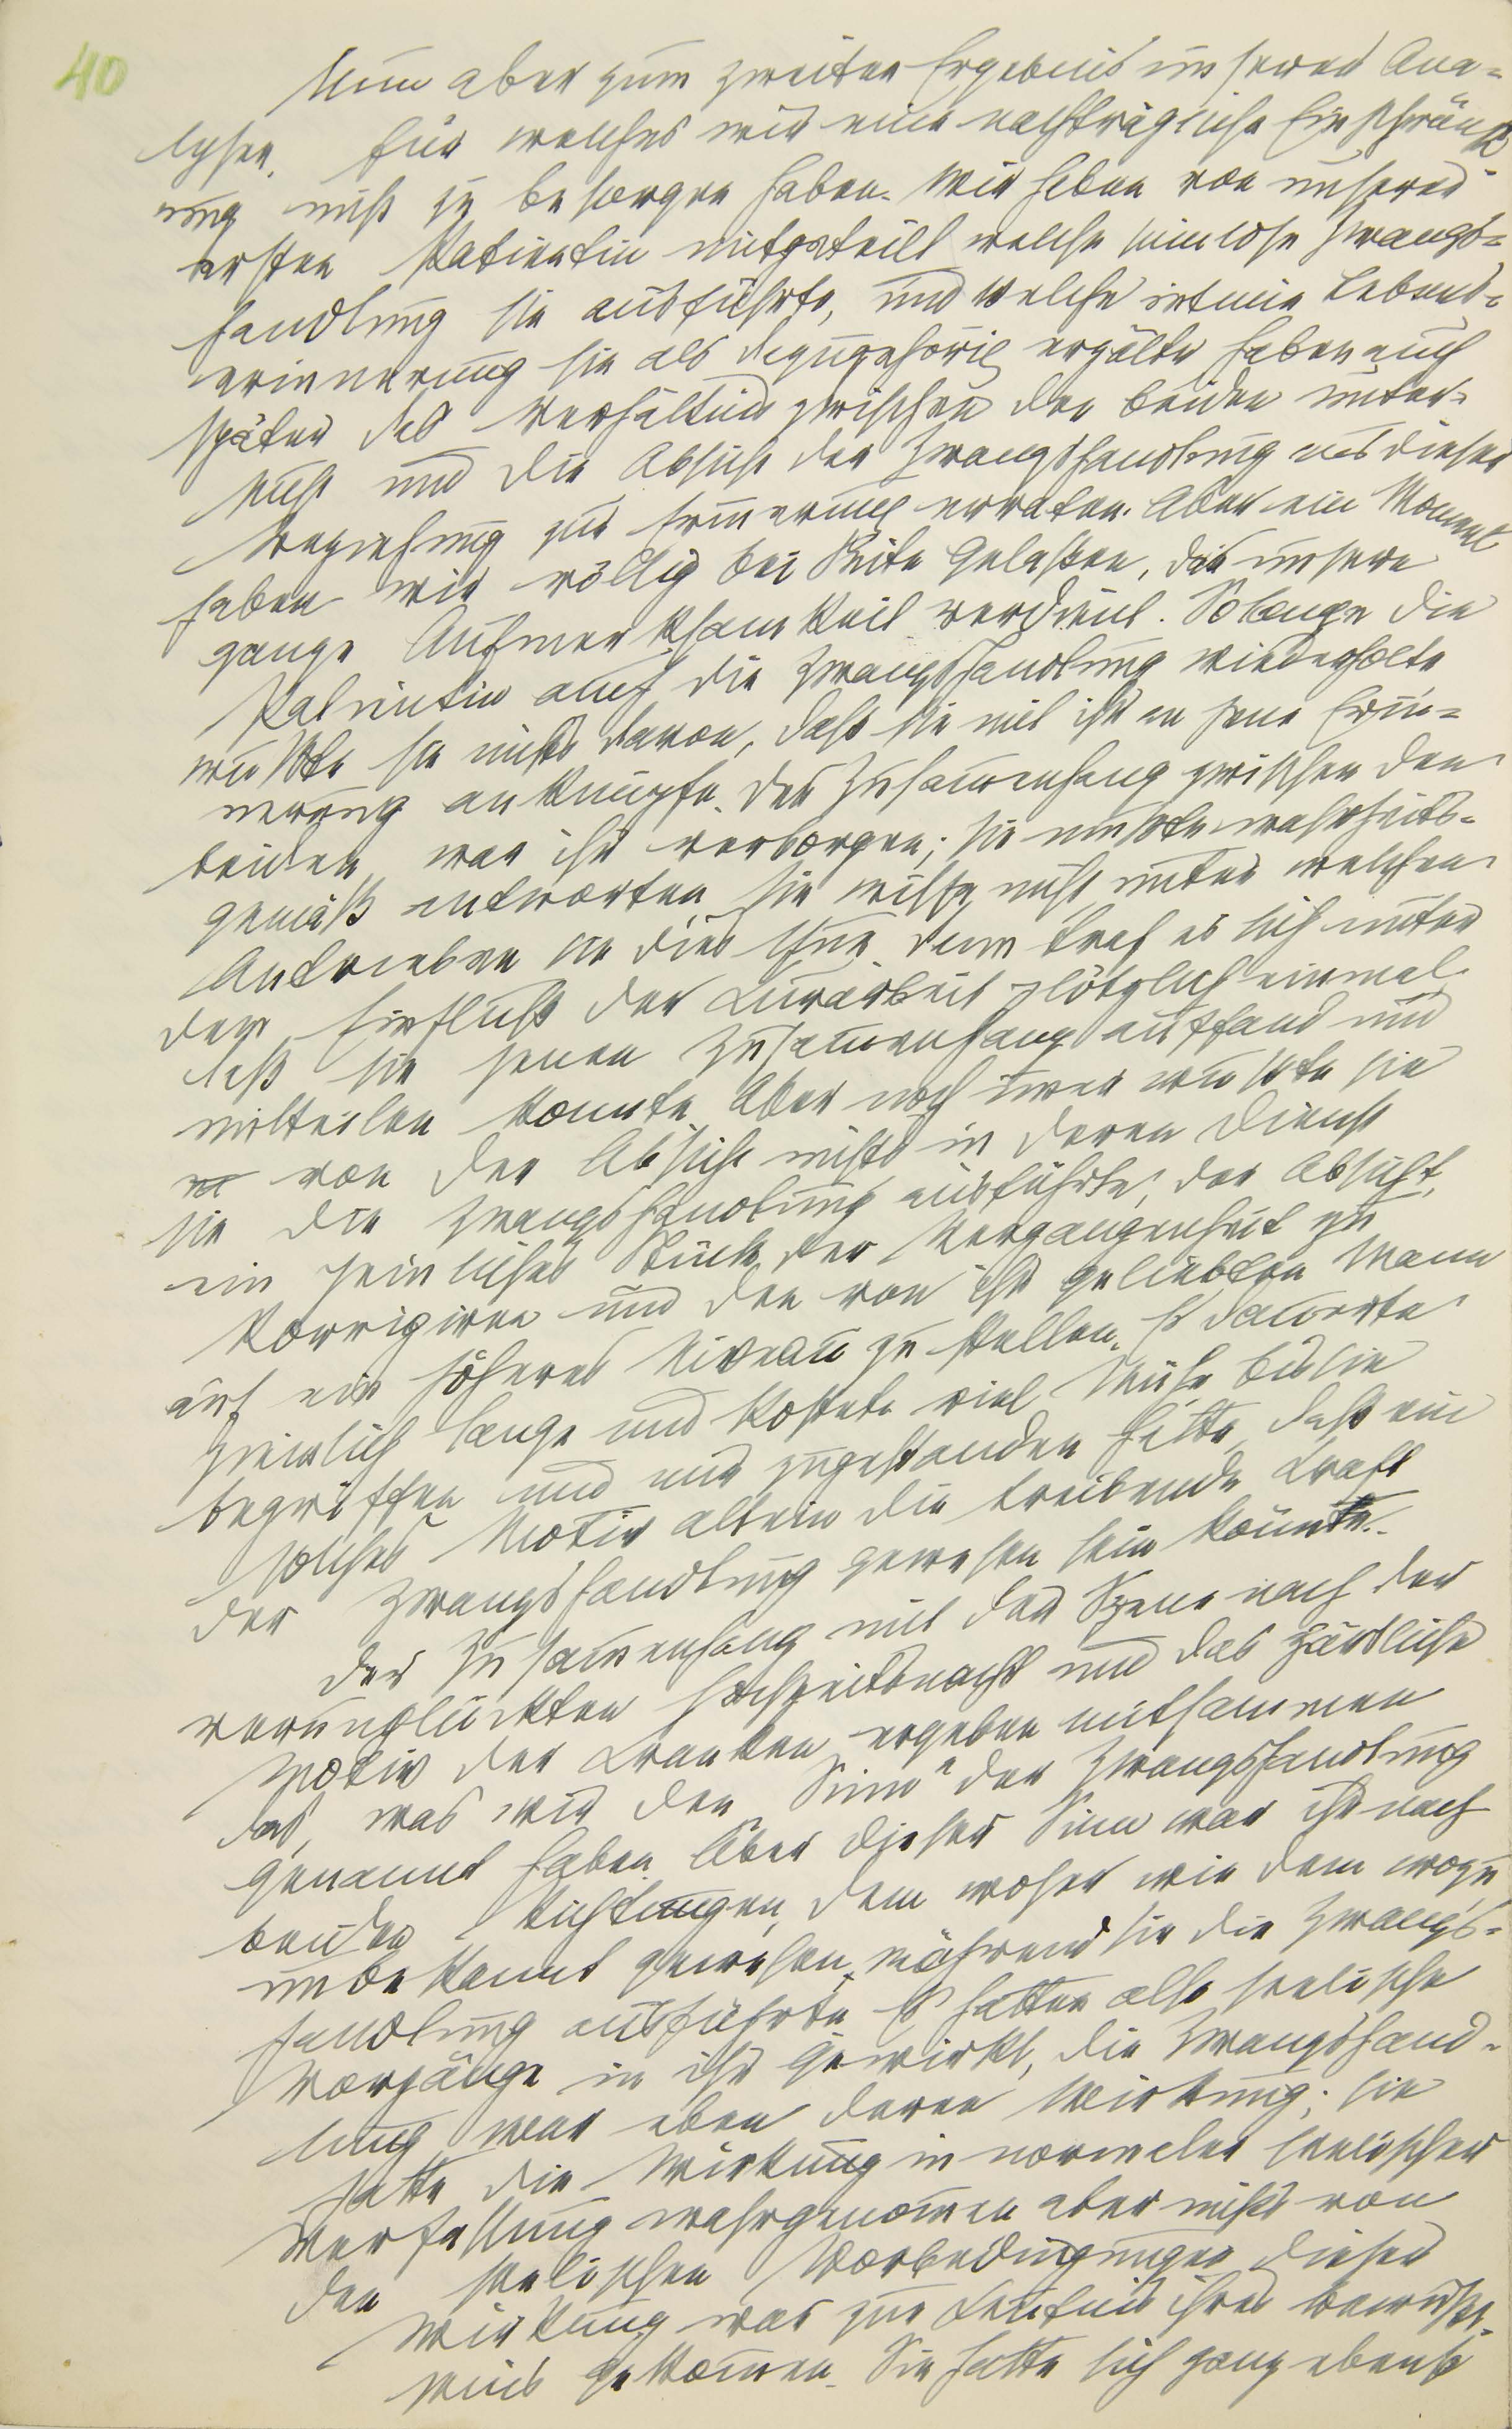 40
Nun aber zum zweiten Ergebnis unserer Ana=
lysen, für welches wir eine nachträgliche Einschränk
ung nicht zu besorgen haben. Wir haben von unserer
ersten Patientin mitgeteilt welche sinnlose Zwangs=
handlung sie ausführte, und welche intime Lebens=
erinnerung sie als dazugehörig erzälte haben auch
später das Verhältnis zwischen den beiden unter=
sucht und die Absicht der Zwangshandlung aus dieser
Beziehung zur Erinnerung erraten. Aber ein Moment
haben wir völlig bei Seite gelassen, das unsere
ganze Aufmerksamkeit verdient. Solange die
Patientin auch die Zwangshandlung wiederholte
wußte sie nichts davon, daß sie mit ihr an jene Erin=
nerung anknüpfe. Der Zusammenhang zwischen den
beiden war ihr verborgen; sie mußte wahrheits=
gemäß antworten sie wisse nicht unter welchen
Antrieben sie dies thue. Dann traf es sich unter
dem Einfluß der Kurarbeit plötzlich einmal
daß sie jenen Zusammenhang auffand und
mitteilen konnte. Aber noch immer wußte sie
von der Absicht nichts in deren Dienst
sie die Zwangshandlung ausführte, der Absicht,
ein peinliches Stück der Vergangenheit zu
korrigiren und den von ihr geliebten Mann
auf ein höheres Niveau zu stellen. Es dauerte
ziemlich lange und kostete viel Mühe bis sie
begriffen und mir zugestanden hatte, daß ein
solches Motiv allein die treibende Kraft
der Zwangshandlung gewesen sein könnte.
Der Zusammenhang mit der Szene nach der
verunglückten Hochzeitsnacht und das zärtliche
Motiv der Kranken ergeben mitsammen
das, was wir den „Sinn" der Zwangshandlung
genannt haben. Aber dieser Sinn war ihr nach
beiden Richtungen, dem woher wie dem wozu
unbekannt gewesen, während sie die Zwangs=
handlung ausführte. Es hatten also seelische
Vorgänge in ihr gewirkt, die Zwangshand=
lung war eben deren Wirkung; sie
hatte die Wirkung in normaler seelischer
Verfassung wahrgenommen aber nichts von
den seelischen Vorbedingungen dieser
Wirkung war zur Kentnis ihres Bewußt=
seins gekommen. Sie hatte sich ganz ebenso